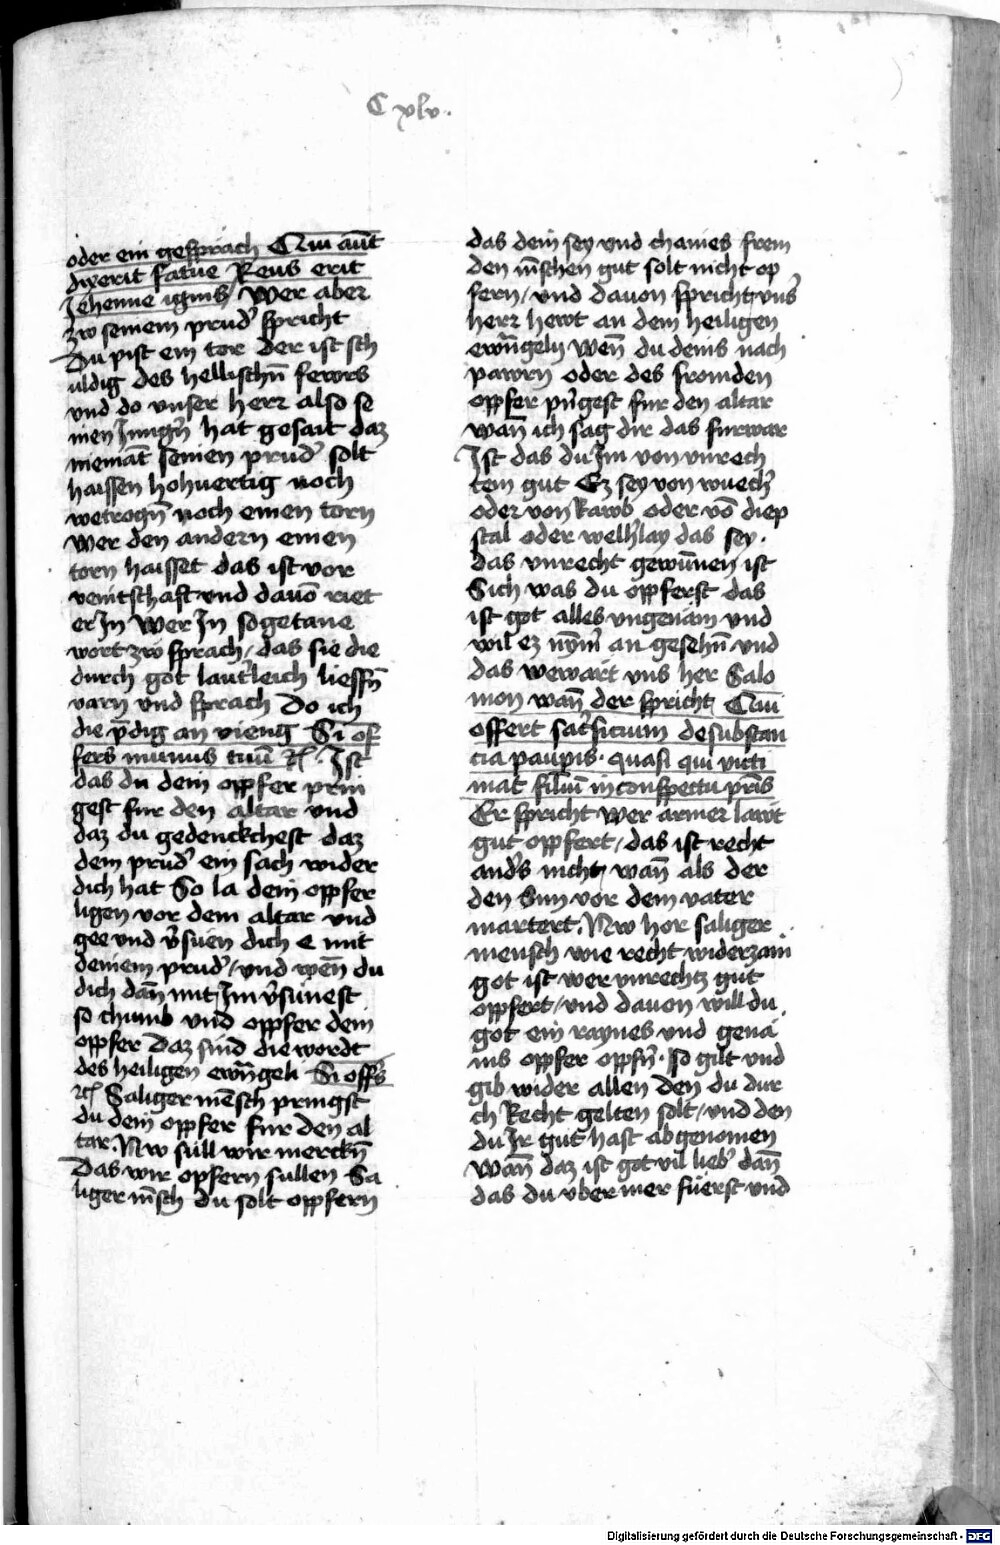 C xlv.
oder ein gesprach Qui aūt
dixerit fatue Reus erit
Jehenne ignis / Wer aber
zw seinem prud' spricht
Du pist ein tor der ist sch
uldig des hellischn̄ fewrs
vnd do vnser herr also se
inen Jungn̄ hat gesait daz
niemāt seinen prud' solt
haissen hohuertig noch
wetrogn̄ noch einen torn
Wer den andern einen
torn haisset das ist vor
veintschaft vnd dauō riet
er In Wer In sogetane
wort zw sprach / das sie die
durch got laut'leich lieffn̄
varn vnd sprach Do ich
die p̄dig an vieng Si of
fers munus tuū rc̄. Ist
das du dein opfer prin
gest fur den altar vnd
daz du gedenckchest daz
dem prud' ein sach wider
dich hat So la dein opfer
ligen vor dem altar vnd
gee vnd v'suen dich e mit
deinem prud' / vnd wen̄ du
dich dan̄ mit Im v'sünest
so chumb vnd opfer dein
opfer Daz sind die wordt
des heiligen ewn̄geli Si offs
rc̄ Saliger mēsch pringst
du dein opfer fur den al
tar. Nw süll wir merckn̄
Das wir opfern sullen Sa
liger m̄sch du solt opfern
das dein sey vnd chaines frem
den m̄schen gut solt nicht op
fern / vnd dauon spricht vns'
herr hewt an dem heiligen
ewn̄gely Wen̄ du deins nach
pawrn oder des fromden
opfer p'ngest fur den altar
wan̄ ich sag dir das furwar
Ist das du Im von vnrech
tem gut Ez sey von wuech'
oder von Rawb oder vō diep
stal oder welh'lay das sey.
das vnrecht gewūnen ist
Sich was du opferst das
ist got alles vngenäm vnd
wil ez nym̄' an gesehn̄ vnd
das wewärt vns her Salo
mon wan̄ der spricht Qui
offert sac'ficium de substan
cia paup̄is. quasi qui victi
mat filiū in conspectu pr̄is
Er spricht wer armer lawt
gut opfert / das ist recht
and's nicht wan̄ als der
den Sun vor dem vater
martert. Nw hor saliger
mensch wie recht widerzäm
got ist wer vnrechtz gut
opfert / vnd dauon will du
got ein raynes vnd genä
ms opfer opfn̄. so gilt vnd
gib wider allen den du dur
ch Recht gelten solt / vnd den
du Ir gut hast abgenomen
Wan̄ daz ist got vil lieb' dan̄
das du vber mer füerst vnd
Digitalisierung gefördert durch die Deutsche Forschungsgemeinschaft - DFG